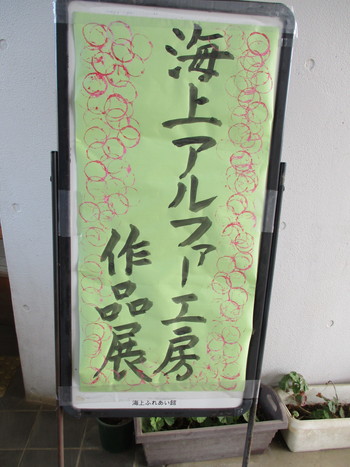 海上アルファー工房
作品展
海上ふれあい館